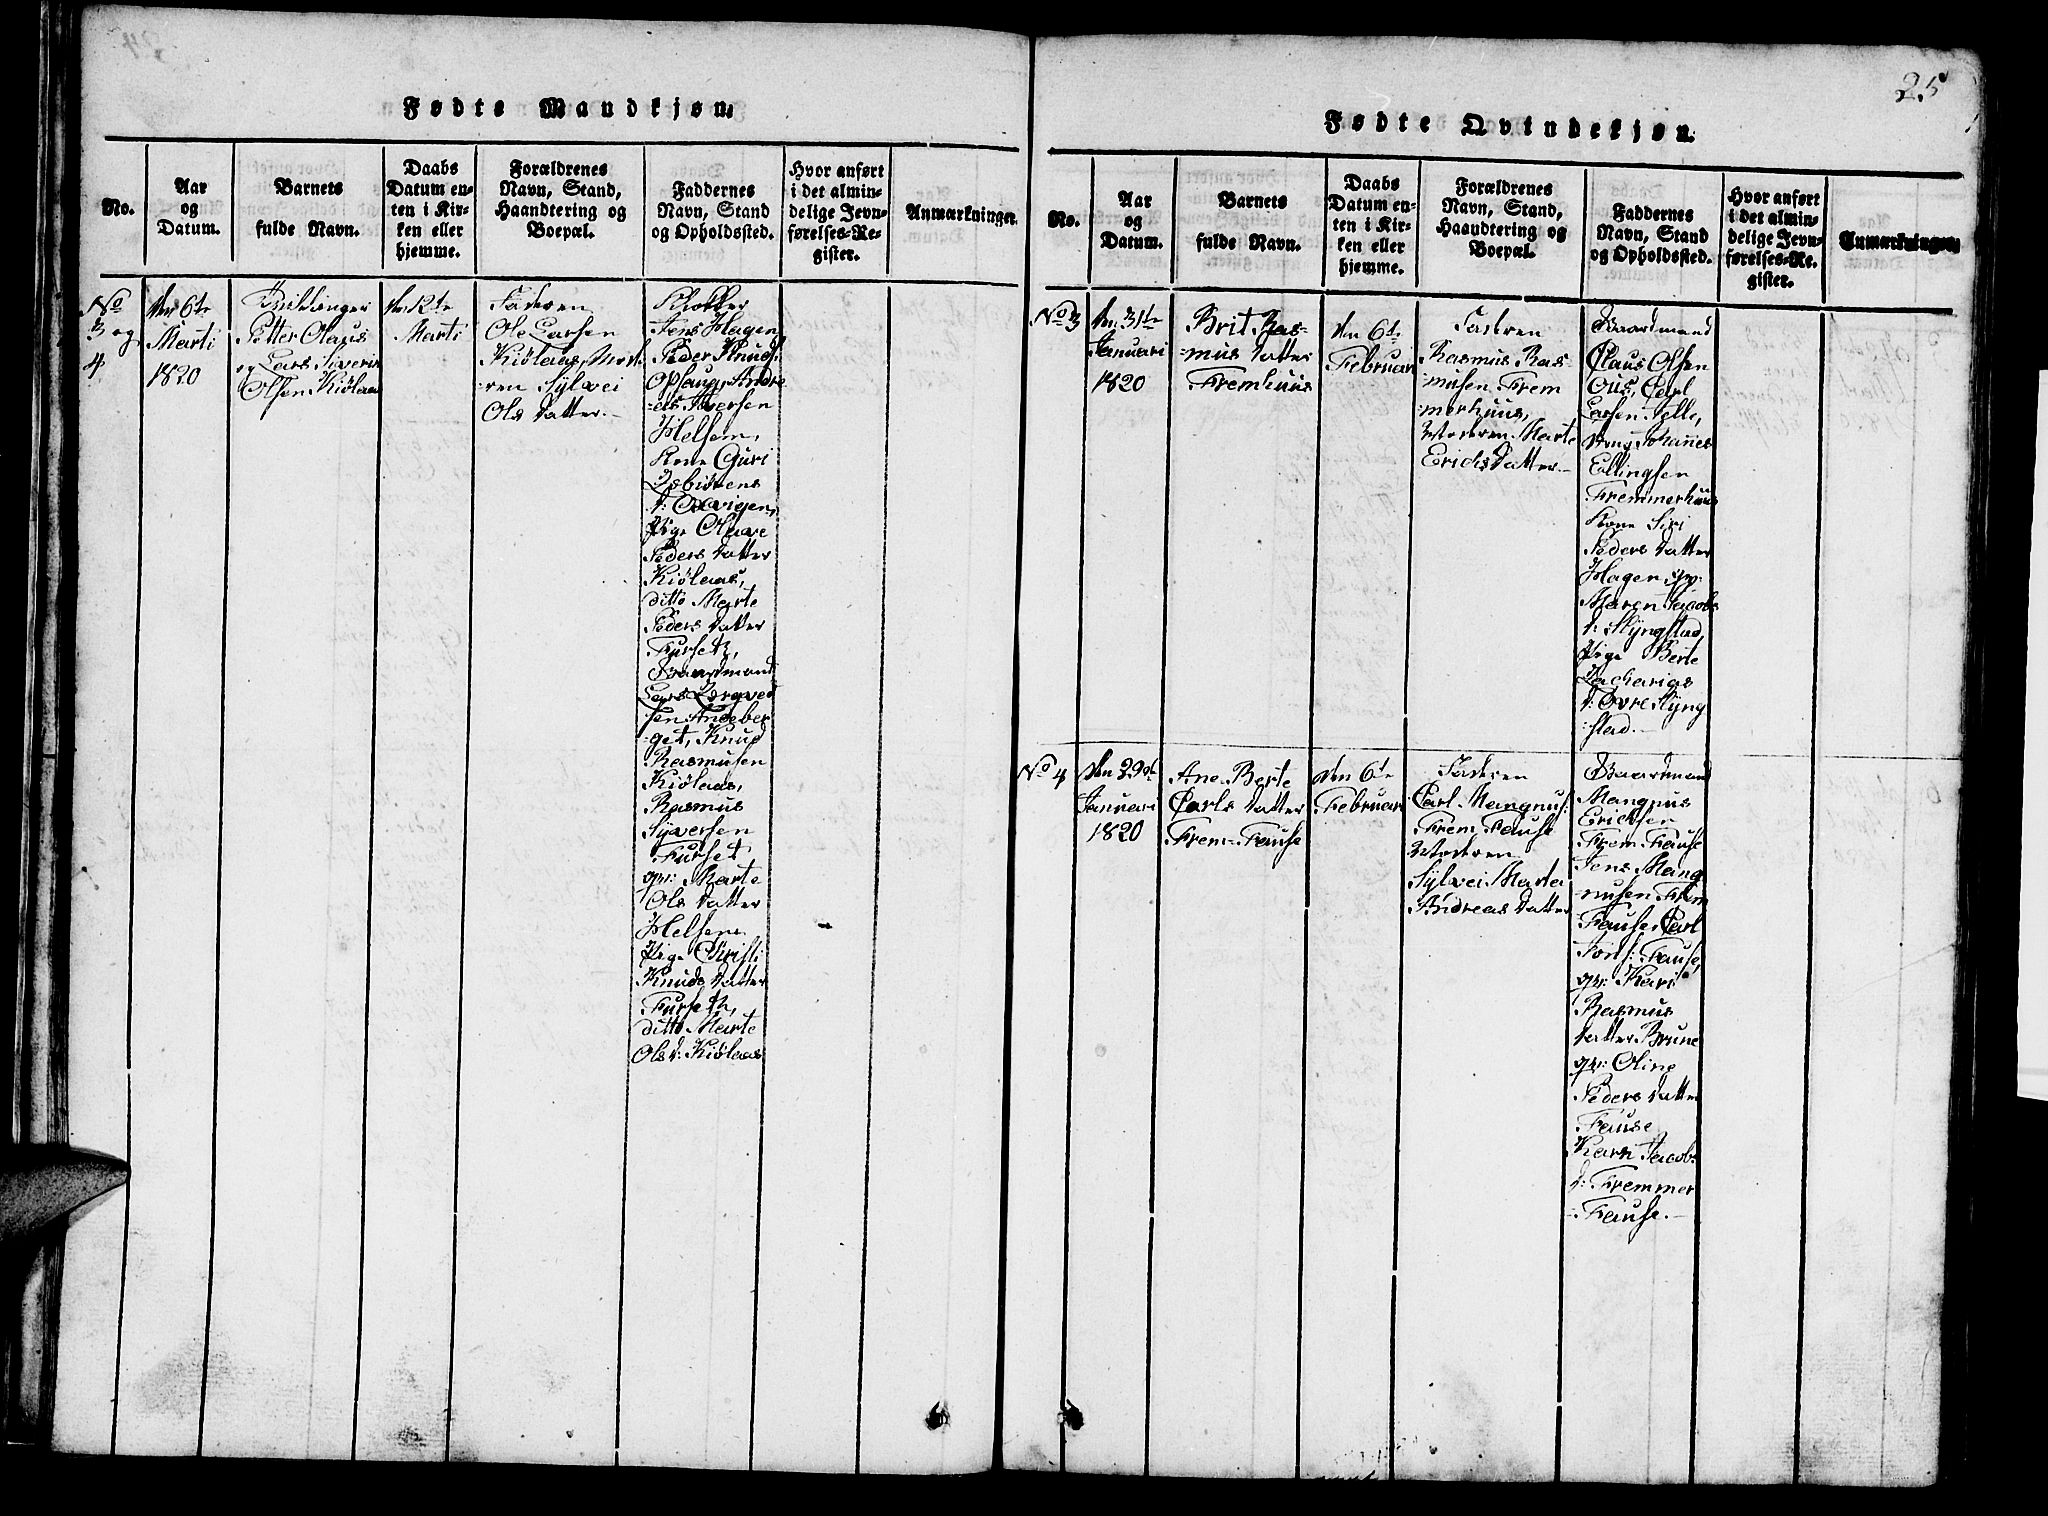 Fødte Mandkjøn.
No.
Aar
og
Datum.
Barnets
fulde Navn.
Daabs
Datum en-
ten i Kir-
ken eller
hjemme.
Forældrenes
Navn, Stand,
Haandtering og
Boepæl.
Faddernes
Navn, Stand
og Opholdssted.
Hvor anført
i det almin-
delige Jevn-
førelses-Re-
gister.
Anmærkninger.
No
3 og
4
den 6te
Marti
1820
Tvillinger
Petter Olaus
og Lars Siverin
Olsen Kiölaas
den 12te
Marti
Faderen
Ole Larsen
Kiölaas, Mode
ren Sylvei
Ols datter.-
Klokker
Jens Hagen
Peder Knuds:
Opsaug, Andre
-as Siversen
Helsem,
Kone Guri
Esbiörens
d:
Pige Olave
Peders datter
Kiölaas,
ditto Marte
Peders datter
Furseth,
Baardmand
Lars
sen Andeber
-get, Knud
Rasmusen
Kiölaas,
Rasmus
Syversen
Furset
gm: Marte
Ols datter
Helsem
Pige Christi
Knuds datter
Furseth,
ditto Marte
Ols d: Kiölaas
25
Fødte Qvindekjøn.
No.
Aar
og
Datum.
Barnets
fulde Navn.
Daabs
Datum en-
ten i Kir-
ken eller
hjemme.
Forældrenes
Navn, Stand,
Haandtering og
Boepæl.
Faddernes
Navn, Stand
og Opholdssted.
Hvor anført
i det almin-
delige Jevn-
førelses-Re-
gister.
Anmærkninger.
No 3
den 31te
Januari
1820
Brit Ras-
mus datter
Fremhuus
den 6te
Februar
Faderen
Rasmus Ras-
musen Frem
-merhuus,
Moderen Marte
Erichs datter.-
Baardmand
Claus Olsen
Ous, Carl
Larsen Velle,
dreng Johannes
Ellingsen
Fremmerhuus
Kone Siri
Peders datter
Hagen, gm:
Maren Jacobs
d: Slyngstad,
Pige Berte
Zacharias
d: Ovre Slyng
-stad.-
No 4
den 29de
Januari
1820
Ane Berte
Carls datter
Frem-Fause
den 6te
Februar
Faderen
Carl Mangnus:
Frem Fause
Moderen
Sylvei Marta
Andreas datter
Baardmand
Mangnus
Ericksen
Frem Fause
Jens Mang
-nusen Frem
Fause, Carl
Jons: Fause,
gm: Kari
Rasmus
datter Brune
gm: Oline
Peders datter
Fause
Karn Jacobs
d: Fremmer
-Fause.-